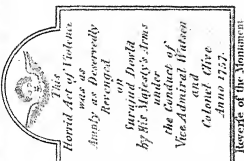 This
Horrid Act of Violence
was as
Amply as Deservedly
Revenged
on
Surajud Dowla
by His Majesty's Arms
under
the Conduct of
Vice Admiral Watson
and
Colonel Clive
Anno 1757.
Reverse of the Monument